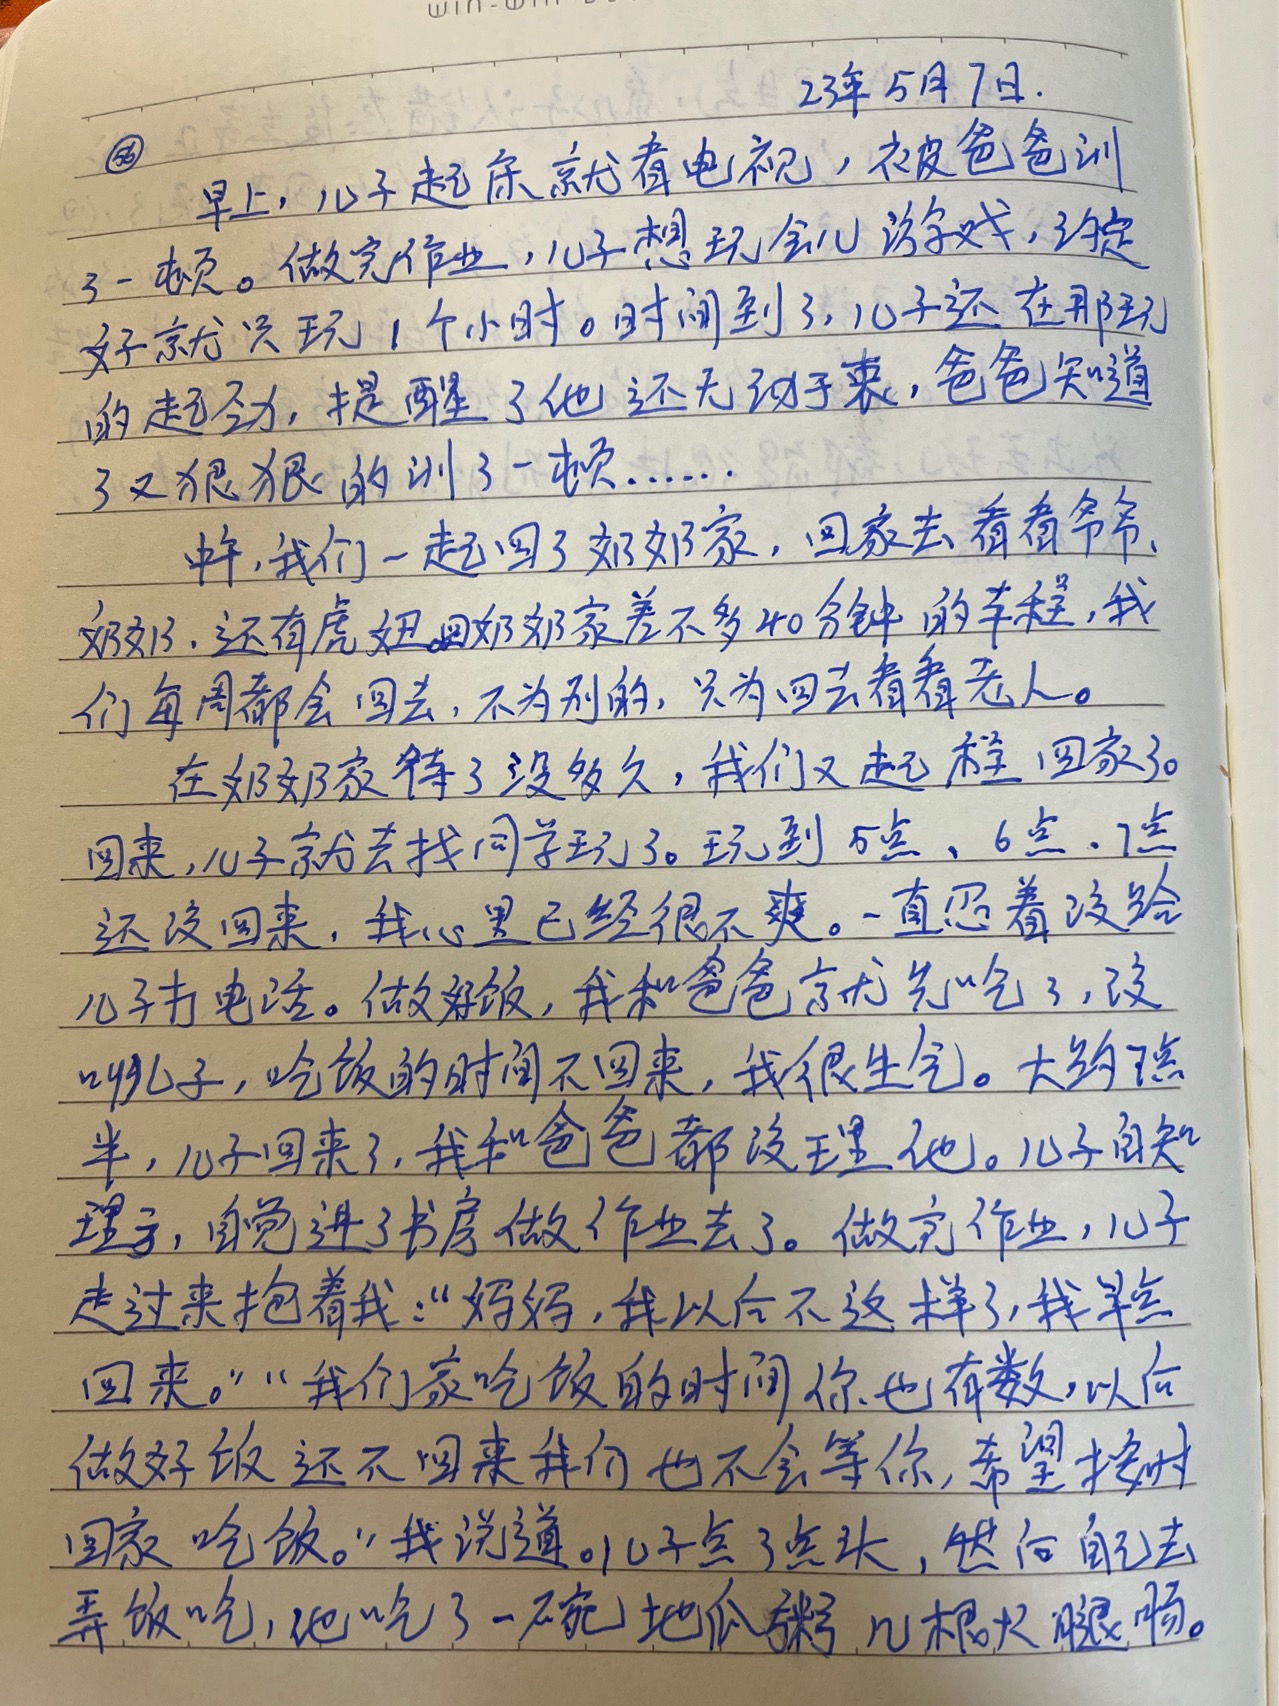 23年5月7日.
56
早上,儿子起床就看电视,被爸爸训
了一顿。做完作业,儿子想玩会儿游戏,约定
好就只玩1个小时。时间到了,儿子还在那玩
的起劲,提醒了他还无动于衷,爸爸知道
了又狠狠的训了一顿......
中午,我们一起回了奶奶家,回家去看看爷爷、
奶奶.还有虎妞.回奶奶家差不多40分钟的车程,我
们每周都会回去,不为别的,只为回去看看老人。
在奶奶家待了没多久,我们又起程回家了。
回来,儿子就去找同学玩了。玩到5点、6点、7点
还没回来,我心里已经很不爽。一直忍着没给
儿子打电话。做好饭,我和爸爸就先吃了,没
叫儿子,吃饭的时间不回来,我很生气。大约7点
半,儿子回来了,我和爸爸都没理他。儿子自知
理亏,自觉进了书房做作业去了。做完作业,儿子
走过来抱着我:“妈妈,我以后不这样了,我早点
回来。”“我们家吃饭的时间你也有数,以后
做好饭还不回来我们也不会等你,希望按时
回家吃饭。”我说道。儿子点了点头,然后自己去
弄饭吃,他吃了一碗地瓜粥几根火腿肠。